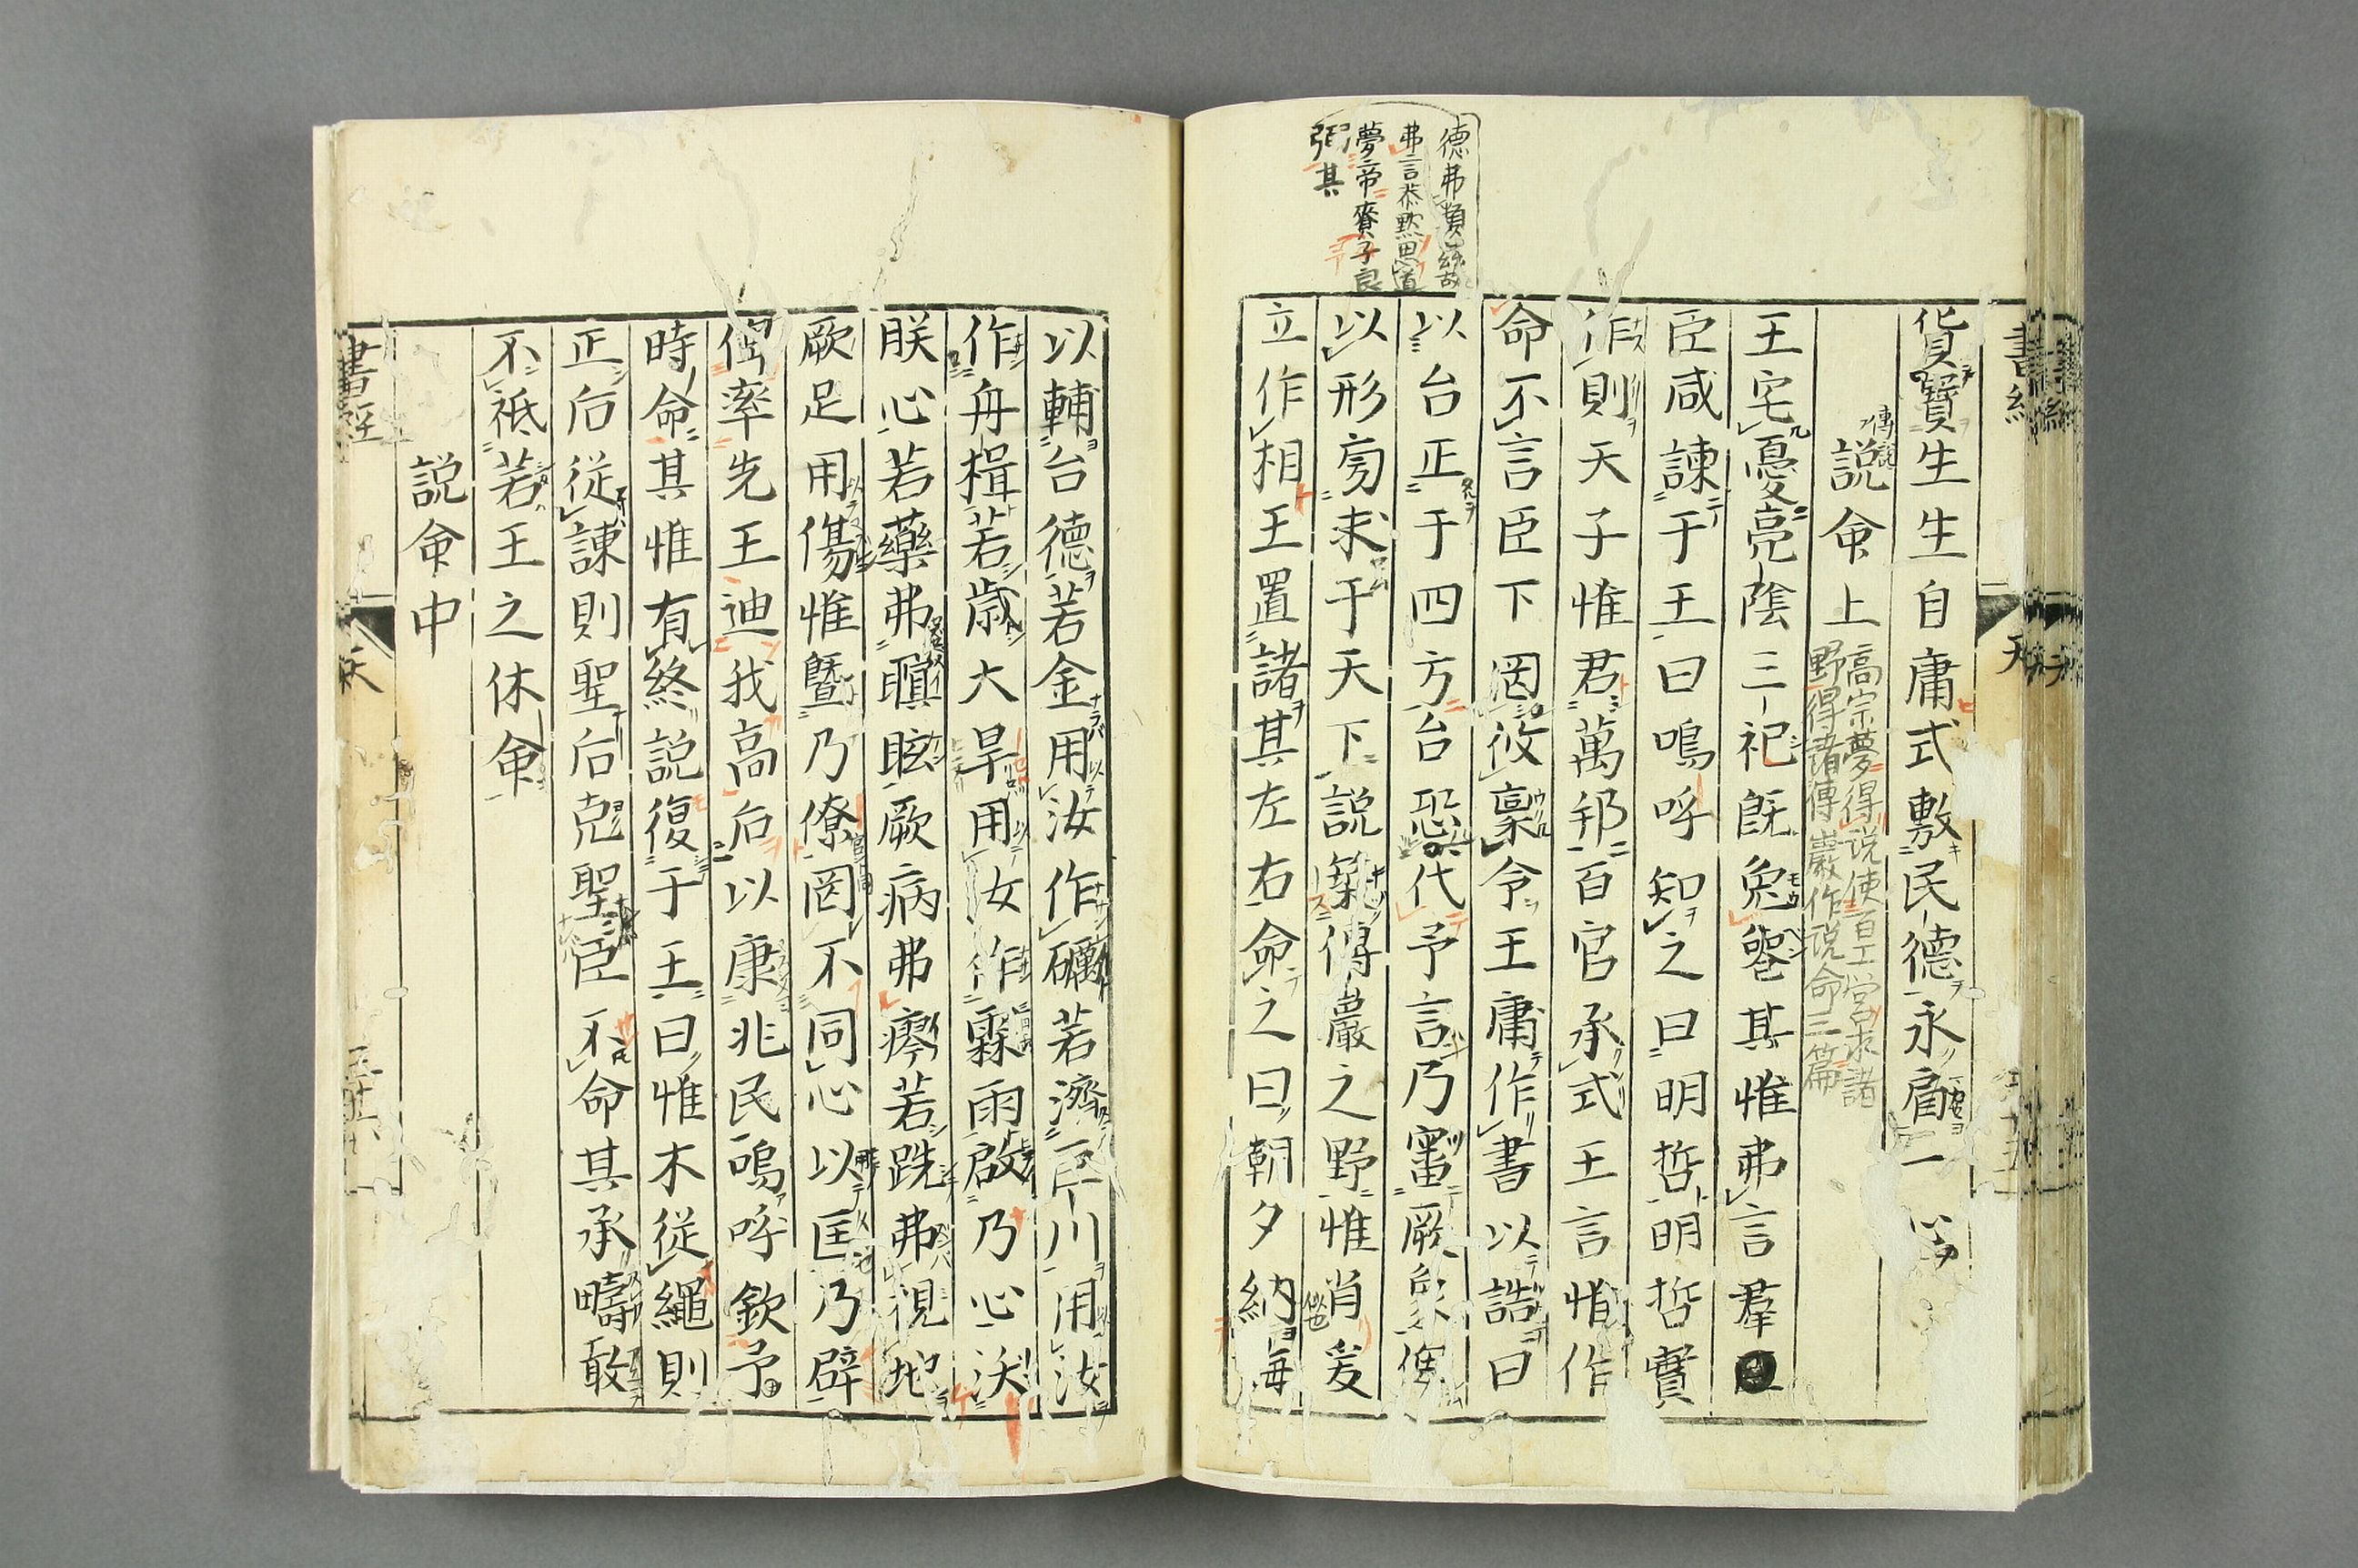 貨寶生生自庸式敷民德永肩一心
説命上
高宗夢得说使百工営求諸
野得諸傅巖作说命三篇
王宅憂亮陰三祀既免喪其惟弗言羣臣
臣咸諫于王曰嗚呼知之曰明哲明哲實
作則天子惟君萬邦百官承式王言惟作
命不言臣下罔攸稟令王庸作書以誥曰
以台正于四方台恐代予言乃審厥象俾
德弗類茲故
弗言恭黙思道
夢帝賚予良
弼其
以形旁求于天下説築傅巖之野惟肖爰
立作相王置諸其左右命之曰朝夕納誨
以輔台德若金用汝作礪若濟巨川用汝
作舟楫若歳大旱用女作霖雨啟乃心沃
朕心若藥弗瞑眩厥病弗瘳若跣弗視地
厥足用傷惟暨乃僚罔不同心以匡乃辟
俾率先王迪我高后以康兆民嗚呼欽予
時命其惟有終説復于王曰惟木従繩則
正后従諫則聖后克聖臣不命其承疇敢
不祗若王之休命
説命中
書經